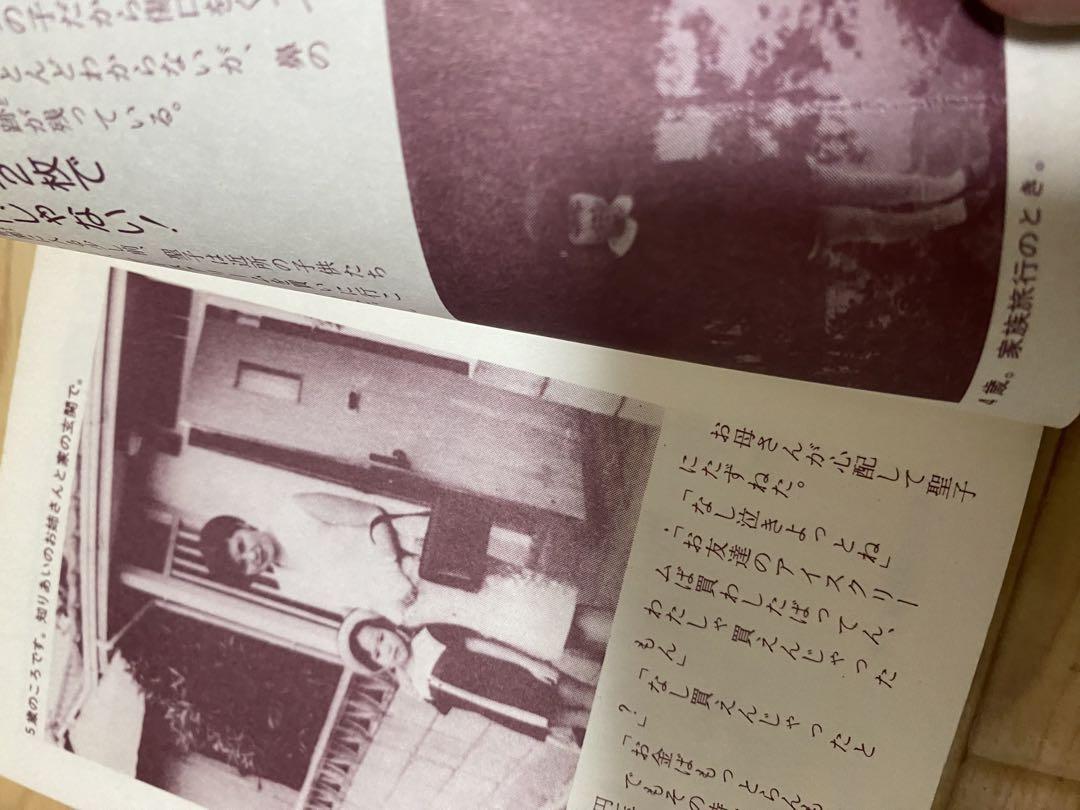 の子だから傷口をく
とんどわからないが、鼻の
跡が残っている。
2枚で
じゃない！
聖子は近所の子供たち
を買いに行こ
4歳。家族旅行のとき。
5歳のころです。知りあいのお姉さんと家の玄関で。
お母さんが心配して聖子
にたずねた。
「なし泣きよっとね」
「お友達のアイスクリー
ムは買わしたばってん、
わたしゃ買えんじゃった
もん」
「なし買えんじゃったと
？」
「お金はもっとらんも
でもその